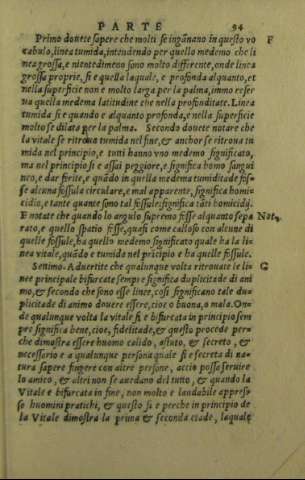 PARTE 94
Primo douete sapere che molti se ingãnano in questo vo F
cabulo, linea tumida, intendendo per quello medemo che li
nea grossa, e nientedimeno sono molto differente, onde linea
grossa proprie, si e quella laquale, e profonda alquanto, et
nella superficie non e molto larga per la palma, immo reser
ua quella medema latitudine che nella profonditate. Linea
tumida si e quando e alquanto profonda, e nella superficie
molto se dilata per la palma. Secondo douete notare che
la vitale se ritroua tumida nel fine, & anchor se ritroua tu
mida nel principio, e tutti hanno vno medemo significato,
ma nel principio si e assai peggiore, e significa homo sangui
neo, e dar ferite, e quãdo in quella medema tumiditade fos=
se alcuna fossula circulare, e mal apparente, significa homi=
cidio, e tante quante sono tal fossule, significa tãti homicidij.
E notate che quando lo angulo supremo fisse alquanto sepa Not.
rato, e quello spatio fisse, quasi come calloso con alcune di
quelle fossule, ha quello medemo significato quale ha la li=
nea vitale, quãdo e tumida nel prīcipio e ha quelle fossule.
Settimo. Aduertite che qualunque volta ritrouate le li G
nee principale bifurcate sempre significa duplicitade di ani
mo, & secondo che sono esse linee, cosi significano tale du=
plicitade di animo douere essere, cioe o buona, o mala. On=
de qualunque volta la vitale si e bifurcata in principio sem
pre significa bene, cioe, fidelitade, & questo procede perv
che dimostra essere huomo calido, astuto, & secreto, &
necessario e a qualunque persona quale si e secreta di na=
tura sapere fingere con altre persone, accio possi seruire
lo amico, & altri non se auedano del tutto, & quando la
Vitale e bifurcata in fine, non molto e laudabile appres=
so huomini pratichi, & questo si e perche in principio de
la Vitale dimostra la prima & seconda etade, laquale